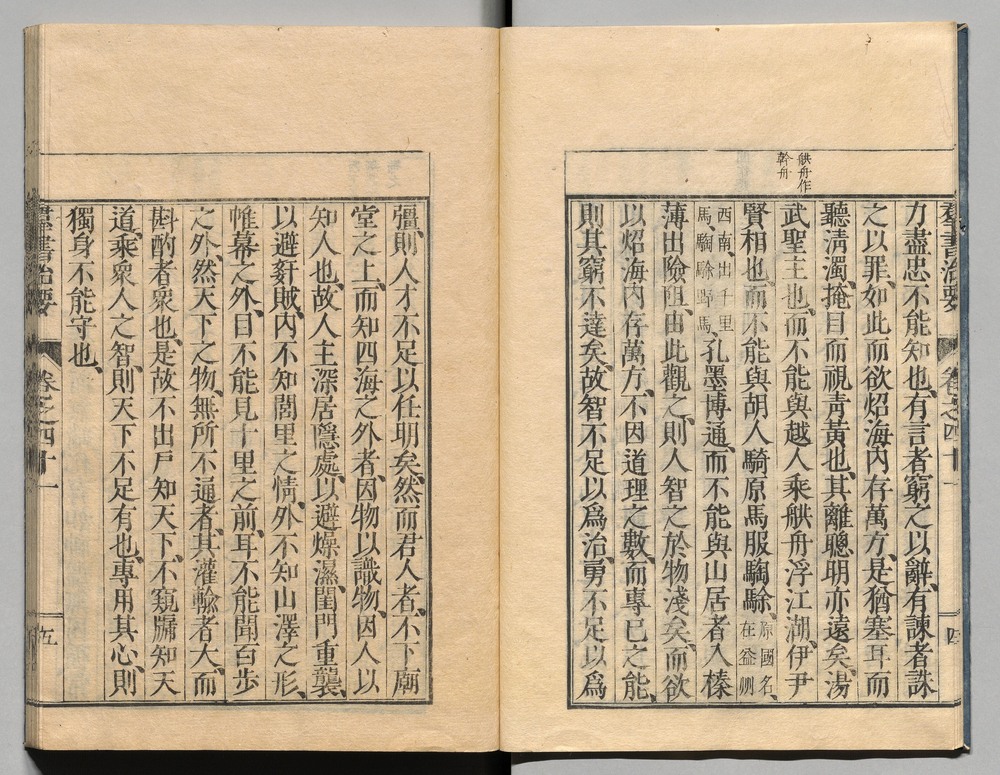 羣書治要 卷之四十一 四
舼舟作
幹舟
力盡忠不能知也、有言者窮之以辭、有諫者誅
之以罪、如此而欲炤海內存萬方、是猶塞耳而
聽淸濁、掩目而視靑黃也、其離聰明亦遠矣、湯
武聖主也、而不能與越人乘舼舟浮江湖、伊尹
賢相也、而不能與胡人騎原馬服騊駼、原國名、在益州
西南、出千里馬、騊駼野馬、孔墨博通、而不能與山居者入榛
薄出險阻、由此觀之、則人智之於物淺矣、而欲
以炤海內存萬方、不因道理之數、而專己之能、
則其窮不達矣、故智不足以爲治、勇不足以爲
彊、則人才不足以任明矣、然而君人者、不下廟
堂之上、而知四海之外者、因物以識物、因人以
知人也、故人主深居隱處、以避燥濕、閨門重襲、
以避姧賊、內不知閭里之情、外不知山澤之形、
帷幕之外、目不能見十里之前、耳不能聞百步
之外、然天下之物、無所不通者、其灌輸者大、而
斟酌者衆也、是故不出戶知天下、不窺牖知天
道、乘衆人之智、則天下不足有也、專用其心、則
獨身不能守也、
羣書治要 卷之四十一 五